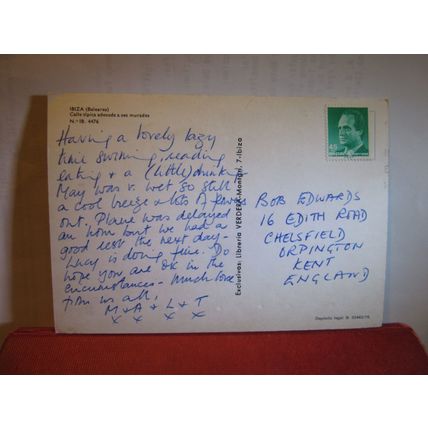 IBIZA (Baleares)
Calle típica adosada a sus murallas
N.º IB. 4476
Having a lovely lazy
time swimming, reading
eating & a (little) drinking
May was v. wet so still
a cool breeze & lots of flowers
out. Plane was delayed
an hour but we had a
good rest the next day -
Lucy is doing fine. Do
hope you are OK in the
circumstances - Much love
from us all,
M + A + L + T
x x x x
Exclusivas: Librería VERDERA-Montgrí, 7-Ibiza
45
BOB EDWARDS
16 EDITH ROAD
CHELSFIELD
ORPINGTON
KENT
ENGLAND
Depósito legal B.